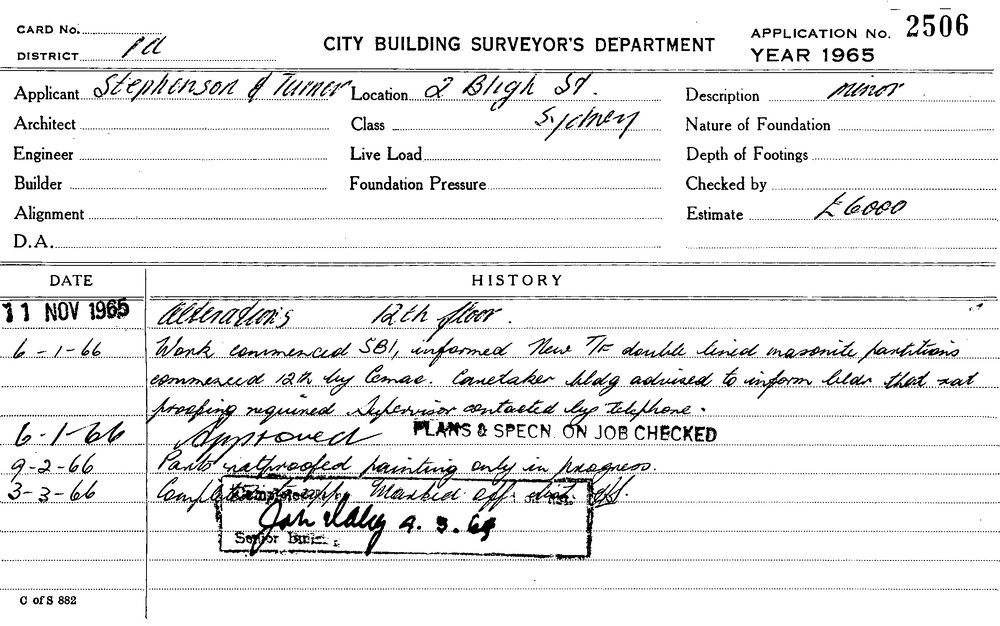 CARD No.
DISTRICT
CITY BUILDING SURVEYOR'S DEPARTMENT
APPLICATION No. 2506
YEAR 1965
Applicant Stephenson & Turner Location 2 Bligh St. Description minor
Architect Class Sydney Nature of Foundation
Engineer Live Load Depth of Footings
Builder Foundation Pressure Checked by
Alignment Estimate £6000
D.A.
DATE HISTORY
11 NOV 1965 Alterations 12th floor.
6-1-66 Work commenced SBI, informed New T/F double lined masonite partitions
commenced 12th by Cemac. Caretaker bldg advised to inform bldr that rat
proofing required Supervisor contacted by telephone.
6-1-66 Approved PLANS & SPECN. ON JOB CHECKED
9-2-66 Parts ratproofed painting only in progress.
3-3-66 Marked off
4.3.66
Senior
C of S 882